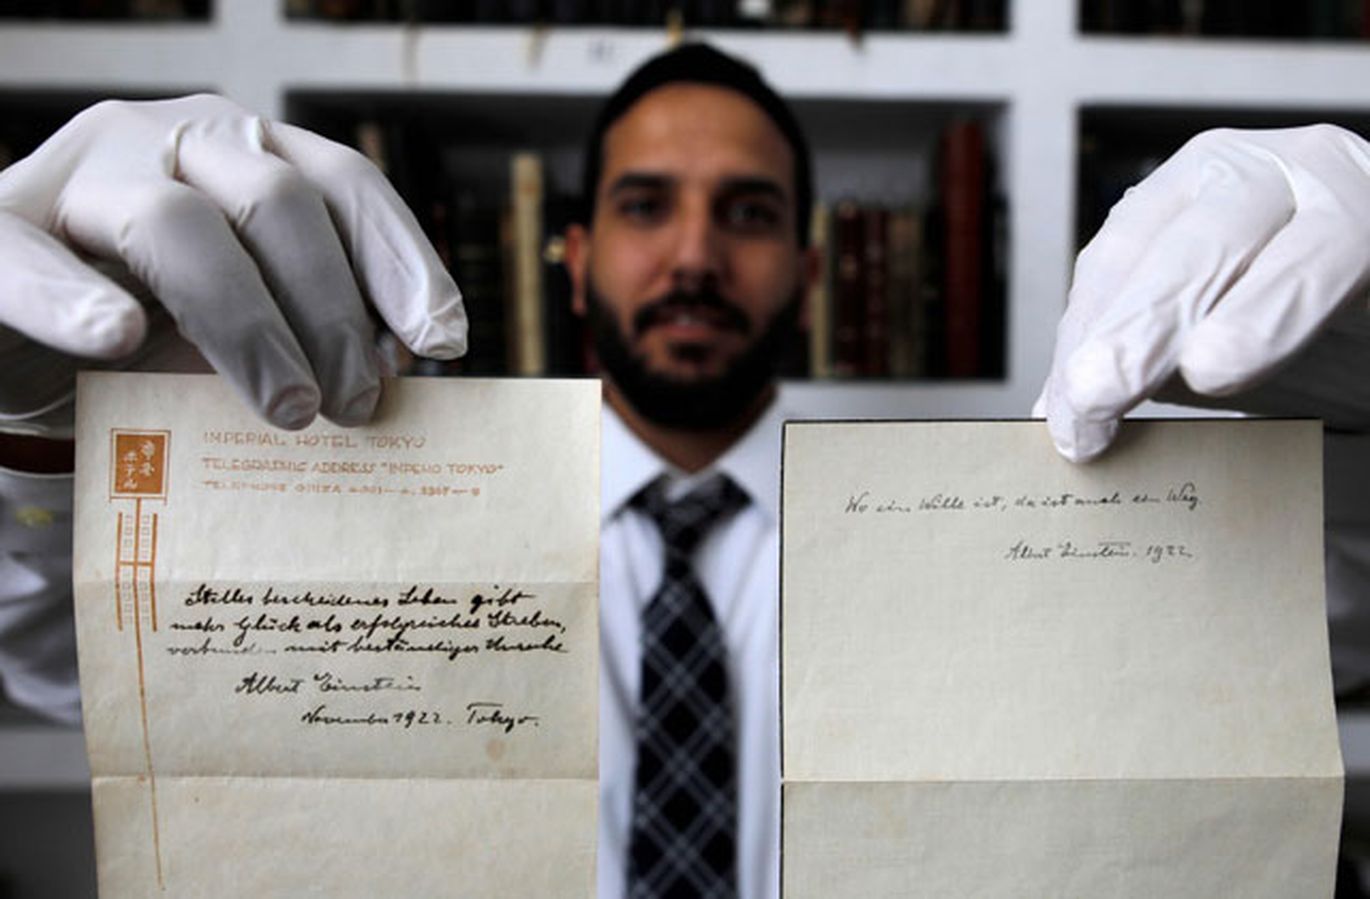 IMPERIAL HOTEL TOKYO
TELEGRAPHIC ADDRESS "IMPEHO TOKYO"
TELEPHONE GINZA
帝冬
ホテル
Stilles bescheidenes Leben gibt
mehr Glück als erfolgreiches Streben,
verbunden mit beständiger Unruhe
Albert Einstein
November 1922. Tokyo.
Wo ein Wille ist, da ist auch ein Weg
Albert Einstein. 1922